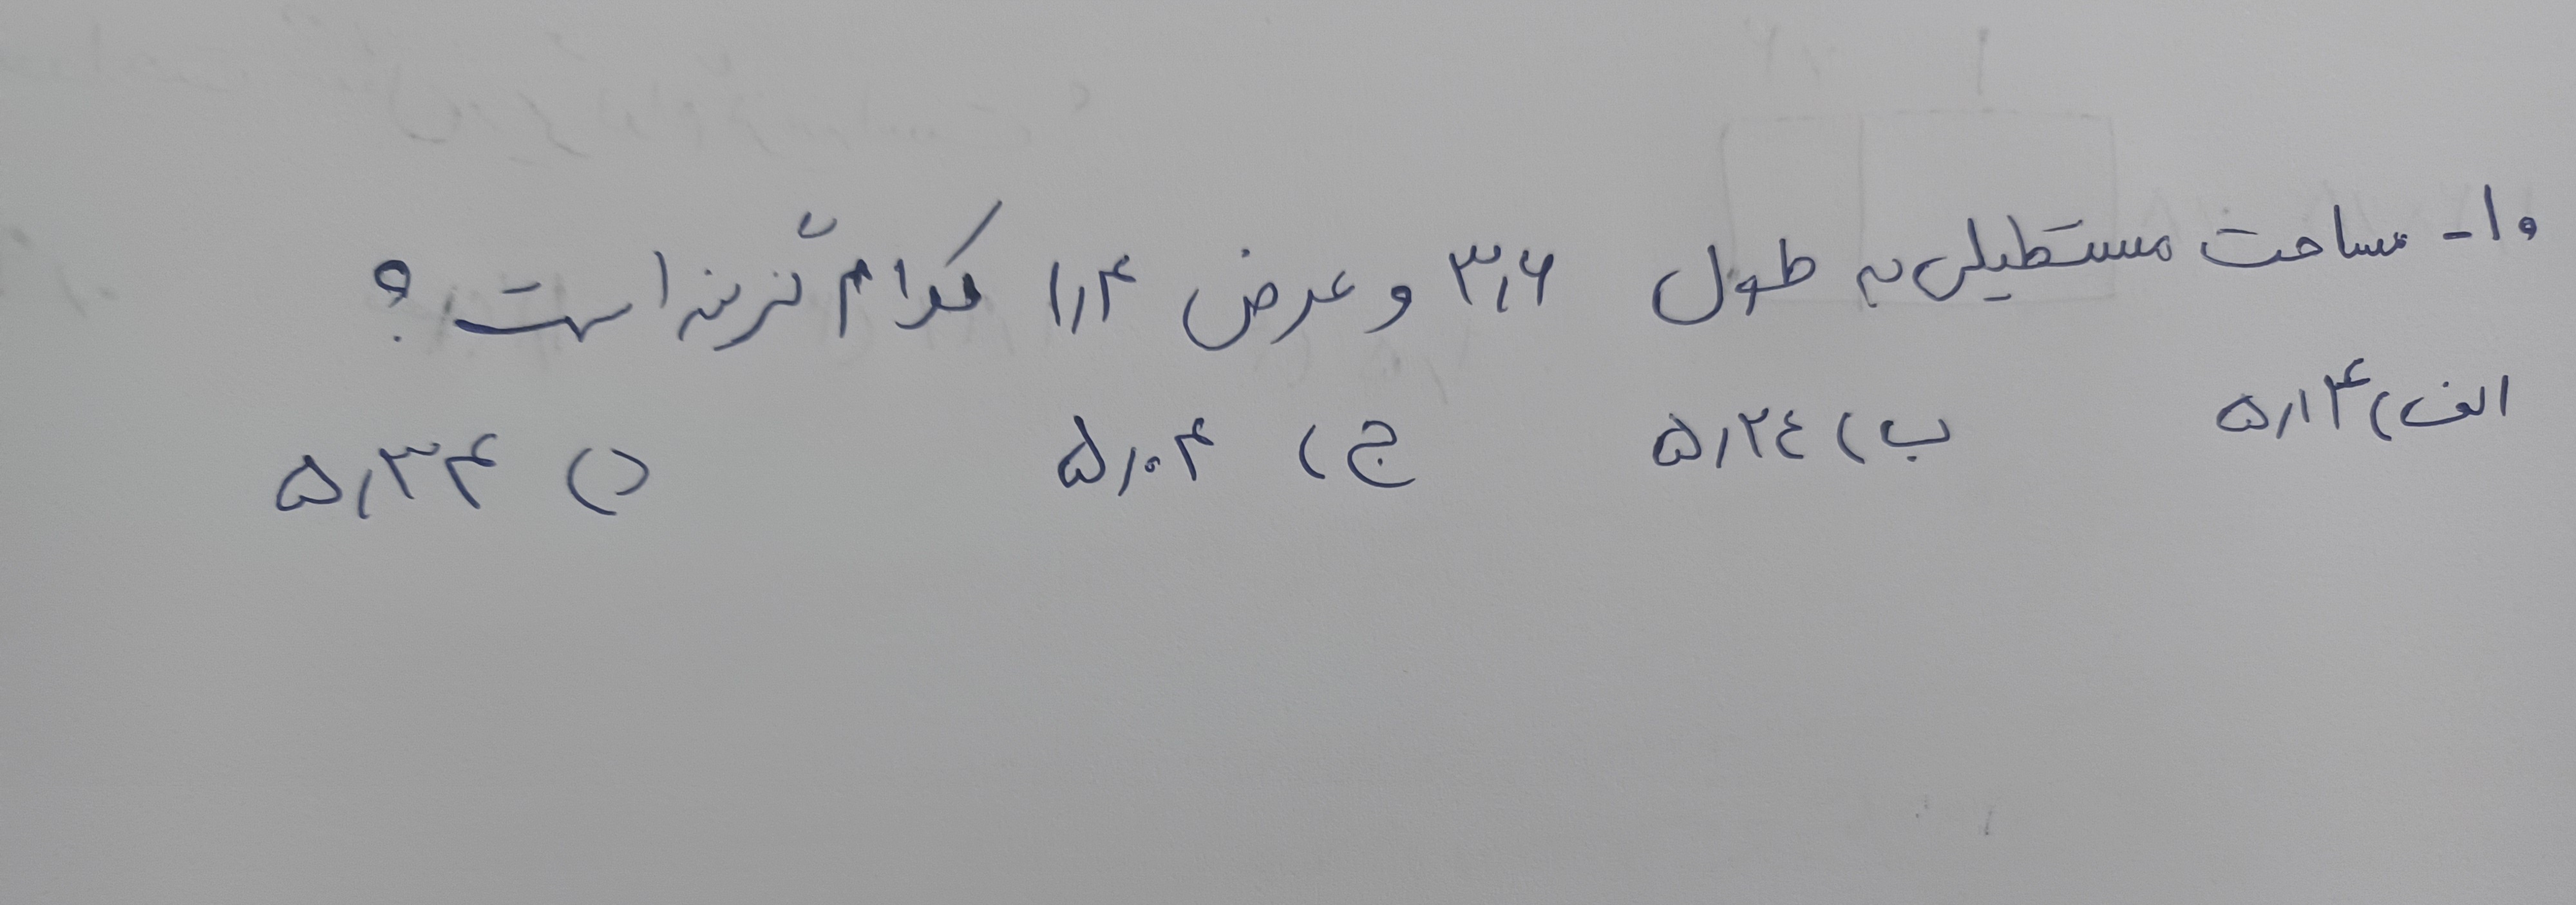 ۱۰- مساحت مستطیلی به طول ۳٫۶ و عرض ۱٫۴ کدام گزینه است؟
الف) ۵٫۱۴ ب) ۵٫۲٤ ج) ۵٫۰۴ د) ۵٫۳۴